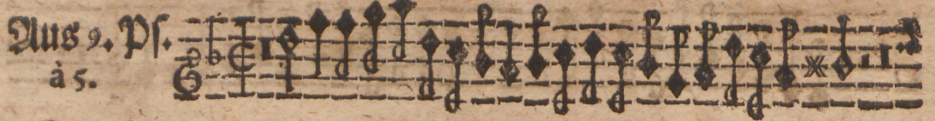 Aus 9. Pſ.
à 5.